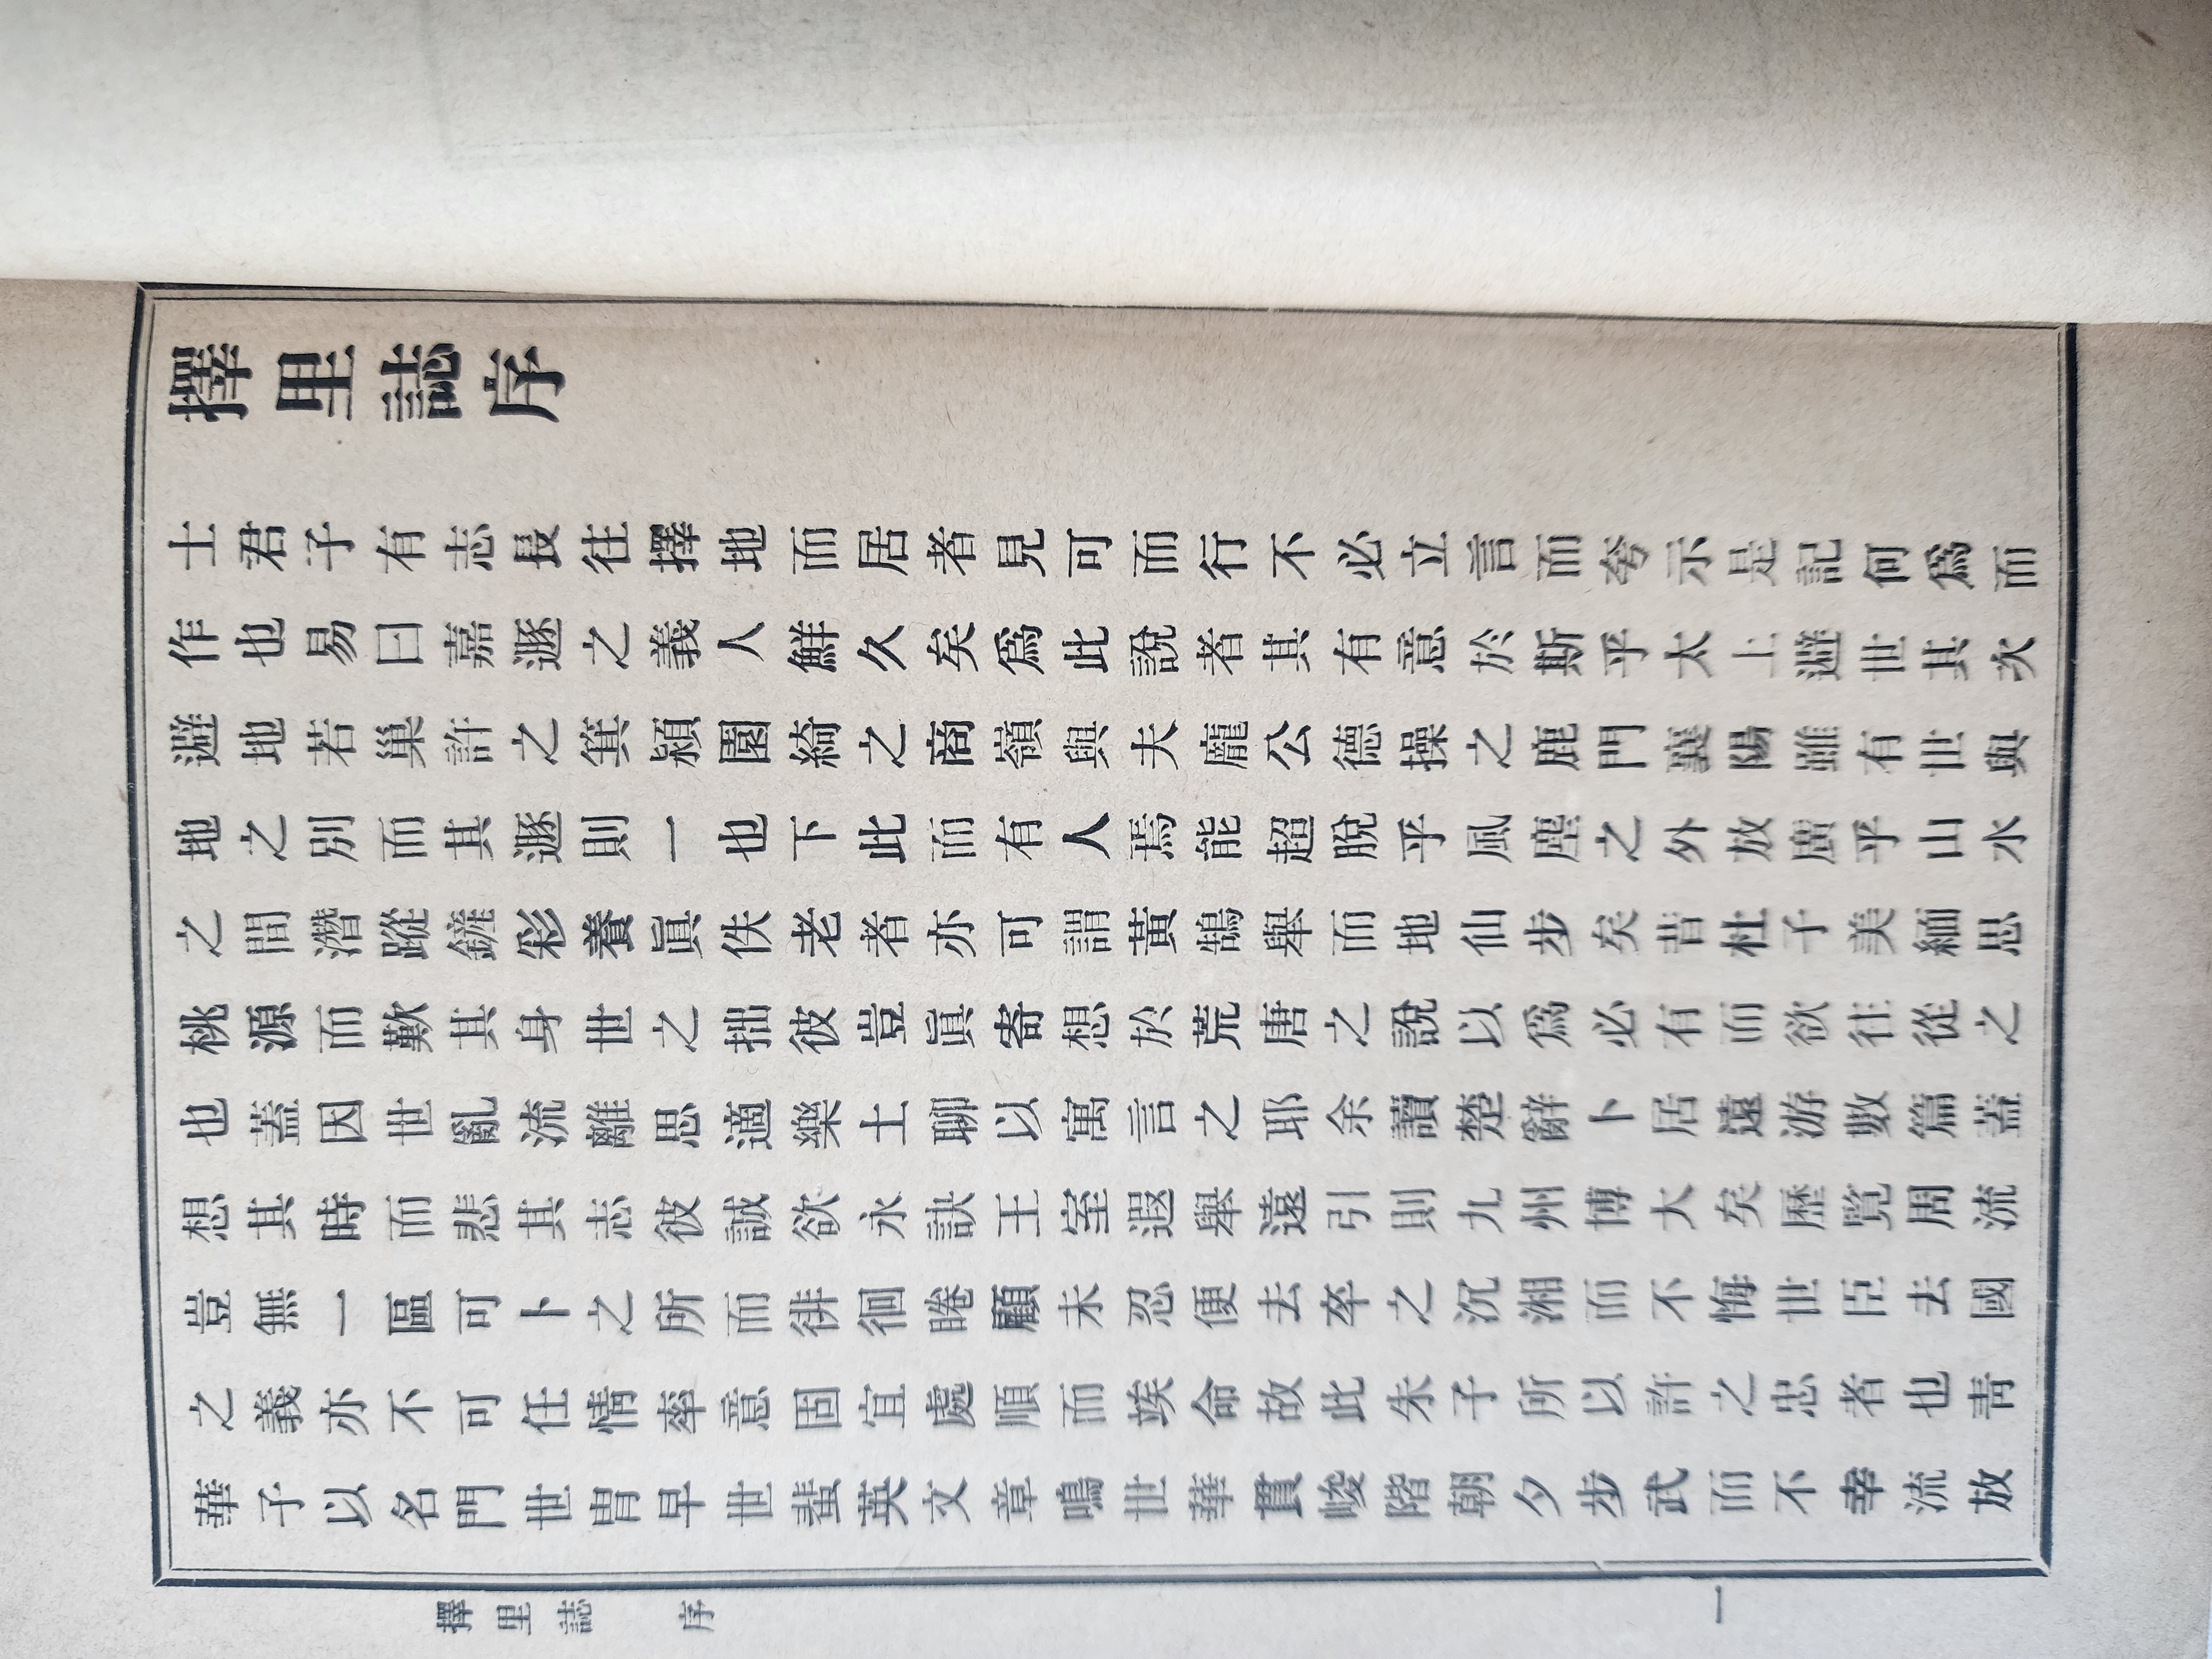 擇里誌序
士君子有志長往擇地而居者見可而行不必立言而夸示是記何爲而
作也易曰嘉遯之義人鮮久矣爲此說者其有意於斯乎太上避世其次
避地若巢許之箕潁園綺之商嶺與夫龐公德操之鹿門襄陽雖有世與
地之別而其遯則一也下此而有人焉能超脫乎風塵之外放曠乎山水
之間潛蹤鏟彩養眞佚老者亦可謂黃鵠舉而地仙步矣昔杜子美緬思
桃源而歎其身世之拙彼豈眞寄想於荒唐之說以爲必有而欲往從之
也蓋因世亂流離思適樂土聊以寓言之耶余讀楚辭卜居遠游數篇蓋
想其時而悲其志彼誠欲永訣王室遐舉遠引則九州博大矣歷覽周流
豈無一區可卜之所而徘徊睠顧未忍便去卒之沉湘而不悔世臣去國
之義亦不可任情率意固宜處順而竢命故此朱子所以許之忠者也靑
華子以名門世冑早世蜚英文章鳴世華貫峻階朝夕步武而不幸流放
擇里誌 序
一